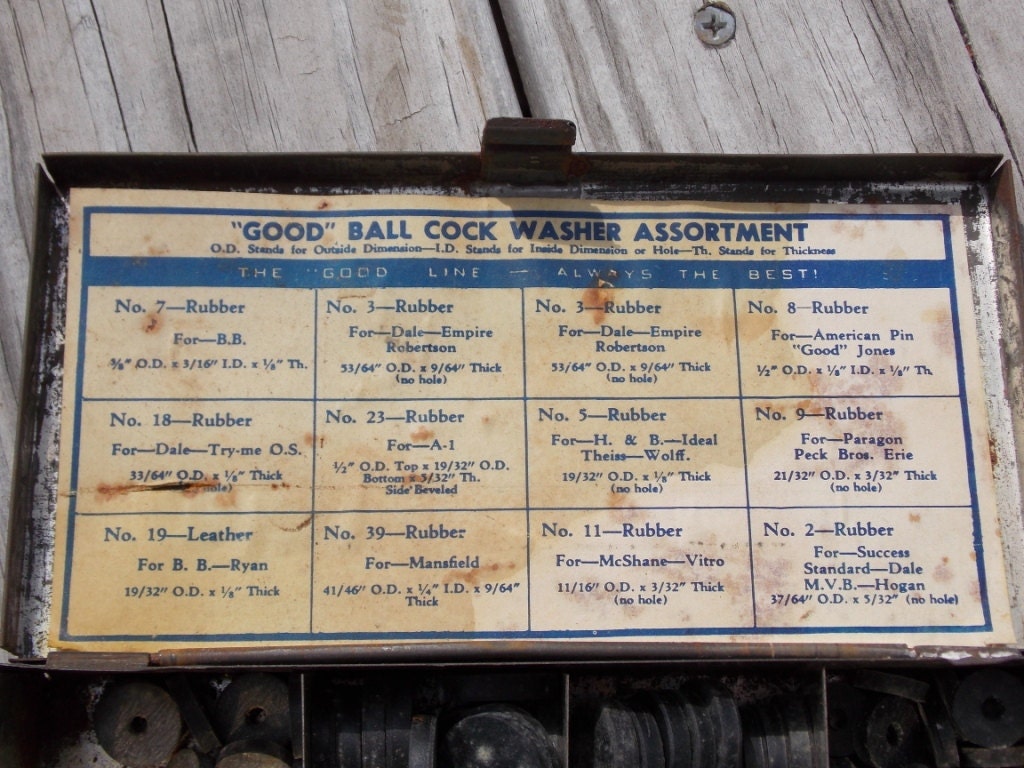 "GOOD" BALL COCK WASHER ASSORTMENT
O.D. Stands for Outside Dimension—I.D. Stands for Inside Dimension or Hole—Th. Stands for Thickness
THE "GOOD LINE — ALWAYS THE BEST!
No. 7—Rubber
For—B.B.
⅜" O.D. x 3/16" I.D. x ⅛" Th.
No. 3—Rubber
For—Dale—Empire
Robertson
53/64" O.D. x 9/64" Thick
(no hole)
No. 3—Rubber
For—Dale—Empire
Robertson
53/64" O.D. x 9/64" Thick
(no hole)
No. 8—Rubber
For—American Pin
"Good" Jones
½" O.D. x ⅛" I.D. x ⅛" Th.
No. 18—Rubber
For—Dale—Try-me O.S.
33/64" O.D. x ⅛" Thick
hole)
No. 23—Rubber
For—A-1
½" O.D. Top x 19/32" O.D.
Bottom x 5/32" Th.
Side Beveled
No. 5—Rubber
For—H. & B.—Ideal
Theiss—Wolff.
19/32" O.D. x ⅛" Thick
(no hole)
No. 9—Rubber
For—Paragon
Peck Bros. Erie
21/32" O.D. x 3/32" Thick
(no hole)
No. 19—Leather
For B. B.—Ryan
19/32" O.D. x ⅛" Thick
No. 39—Rubber
For—Mansfield
41/46" O.D. x ¼" I.D. x 9/64"
Thick
No. 11—Rubber
For—McShane—Vitro
11/16" O.D. x 3/32" Thick
(no hole)
No. 2—Rubber
For—Success
Standard—Dale
M.V.B.—Hogan
37/64" O.D. x 5/32" (no hole)